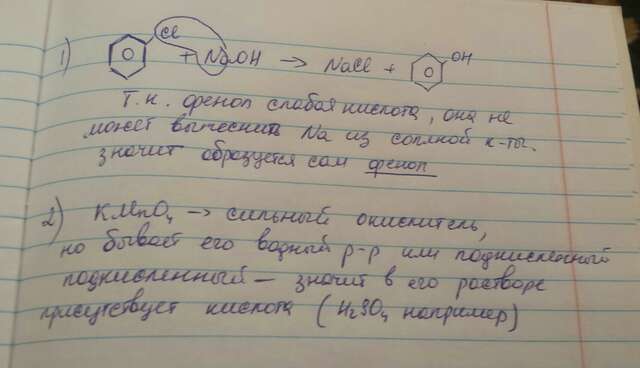 1) Cl + NaOH → NaCl + OH
Т.к. фенол слабая кислота, она не
может вытеснить Na из соляной к-ты.
значит образуется сам фенол
2) KMnO4 → сильный окислитель,
но бывает его водный р-р или подкисленный
подкисленный – значит в его растворе
присутствует кислота (H2SO4 например)